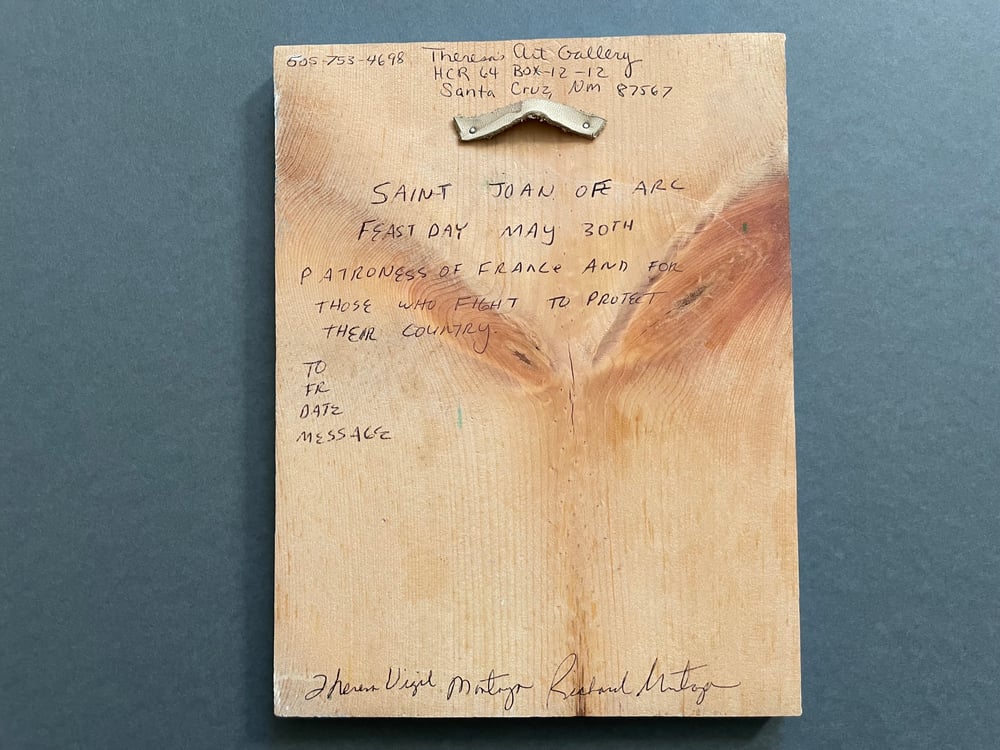 505-753-4698 Theresa's Art Gallery
HCR 64 BOX-12-12
Santa Cruz, NM 87567
SAINT JOAN OF ARC
FEAST DAY MAY 30TH
PATRONESS OF FRANCE AND FOR
THOSE WHO FIGHT TO PROTECT
THEIR COUNTRY.
TO
FR
DATE
MESSAGE
Theresa Vigil Montoya Richard Montoya